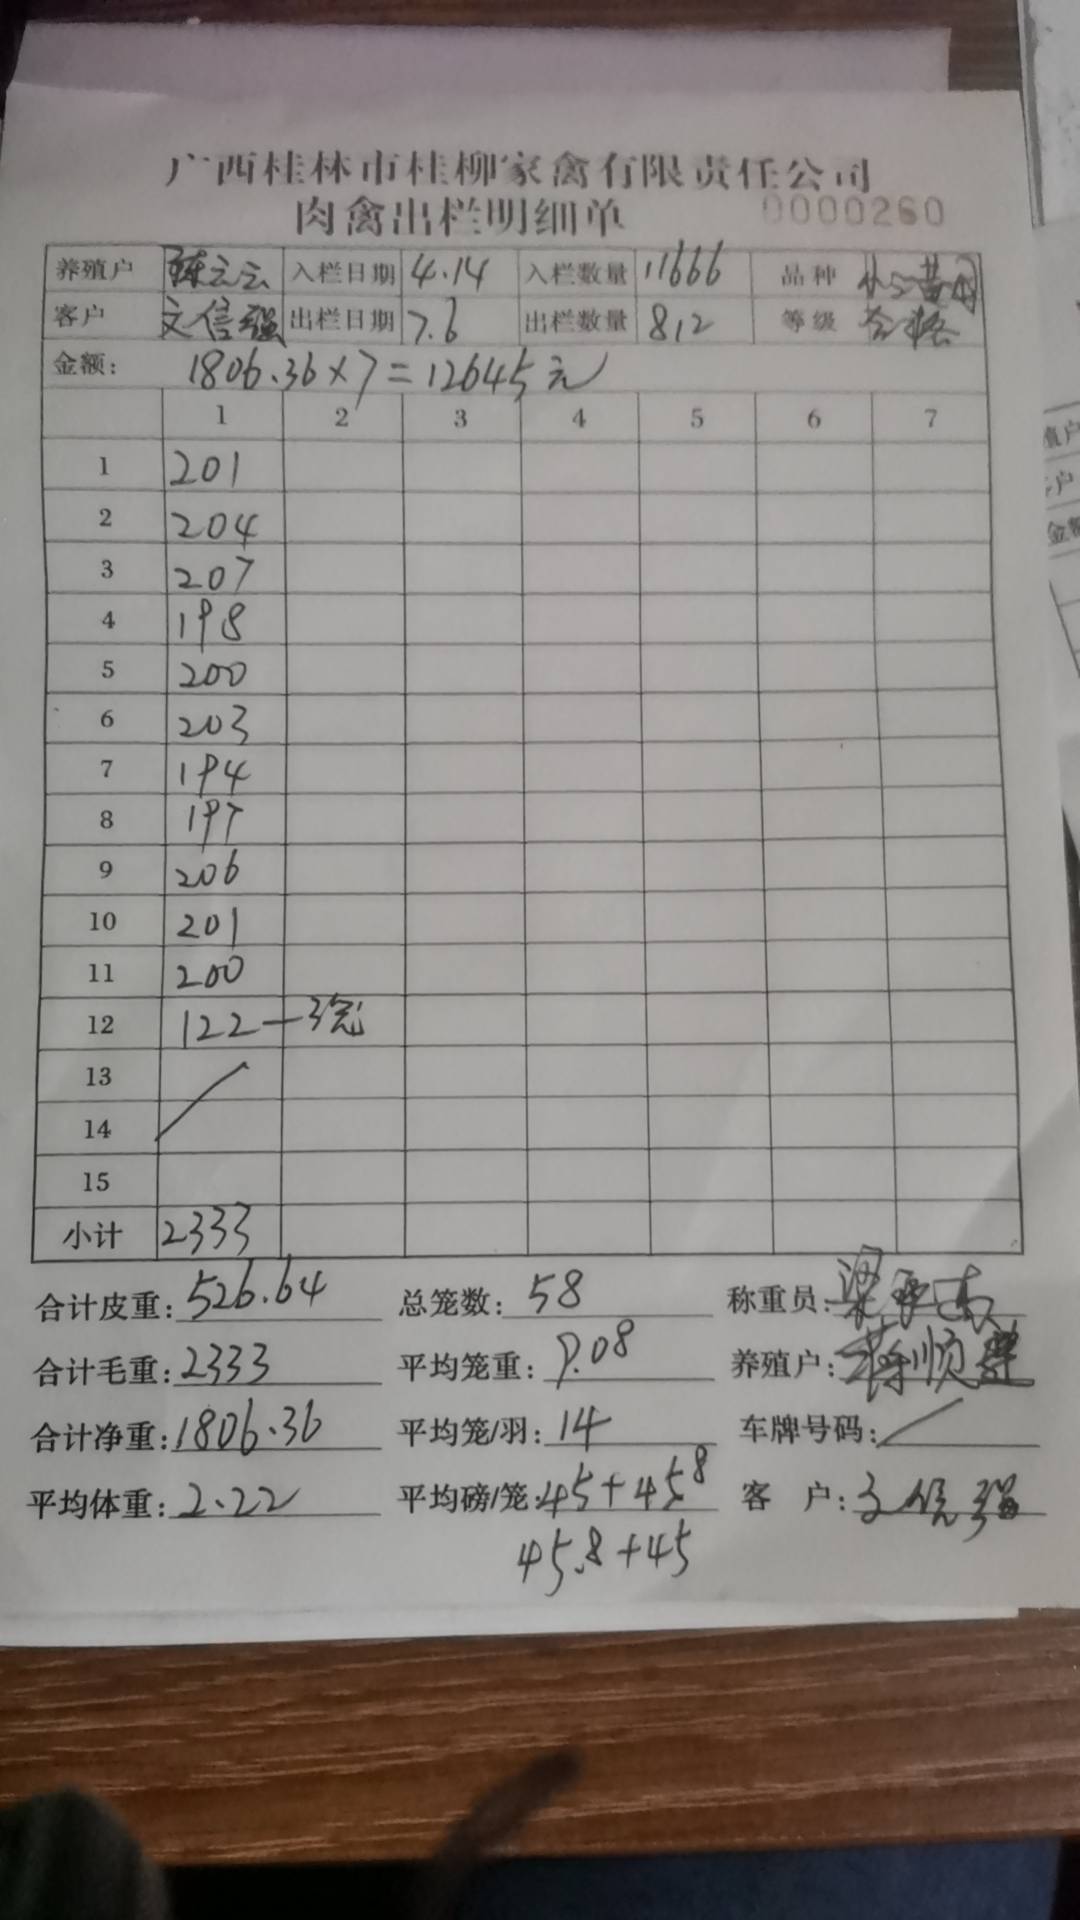 广西桂林市桂柳家禽有限责任公司
肉禽出栏明细单 0000260
养殖户 陈云云 入栏日期 4.14 入栏数量 11666 品种
客户 文信强 出栏日期 7.6 出栏数量 812 等级 合格
金额: 1806.36×7=12645元
1 2 3 4 5 6 7
1 201
2 204
3 207
4 198
5 200
6 203
7 194
8 197
9 206
10 201
11 200
12 122—3笼
13
14
15
小计 2333
合计皮重: 526.64 总笼数: 58 称重员:
合计毛重: 2333 平均笼重: 9.08 养殖户:
合计净重: 1806.36 平均笼/羽: 14 车牌号码:
平均体重: 2.22 平均磅/笼: 45+45.8 客 户: 文信强
45.8+45
植户
户
金额